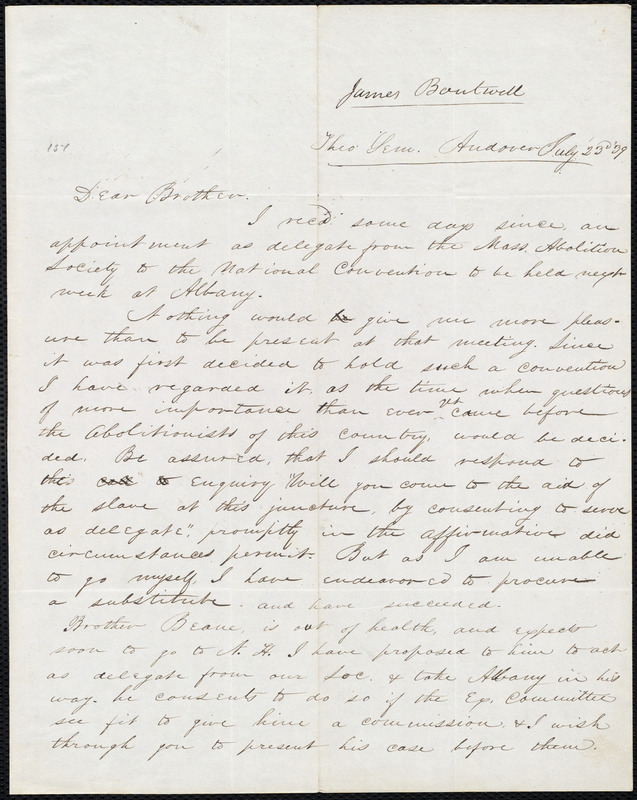 James Boutwell
Theo. Sem. Andover July 23d '39
151
Dear Brother.
I rec'd some days since, an
appointment as delegate from the Mass. Abolition
Society to the National Convention to be held next
week at Albany.
Nothing would be give me more pleas-
ure than to be present at that meeting. Since
it was first decided to hold such a convention
I have regarded it, as the time when questions
of more importance than ever yet came before
the Abolitionists of this country, would be deci-
ded. Be assured, that I should respond to
the call to Enquiry "Will you come to the aid of
the slave at this juncture, by consenting to serve
as delegate", promptly in the affirmative did
circumstances permit. But as I am unable
to go myself, I have endeavored to procure
a substitute. and have succeeded.
Brother Beane, is out of health, and expects
soon to go to N. H. I have proposed to him to act
as delegate from our Soc. & take Albany in his
way. he consents to do so if the Ex. Committee
see fit to give him a commission, & I wish
through you to present his case before them.